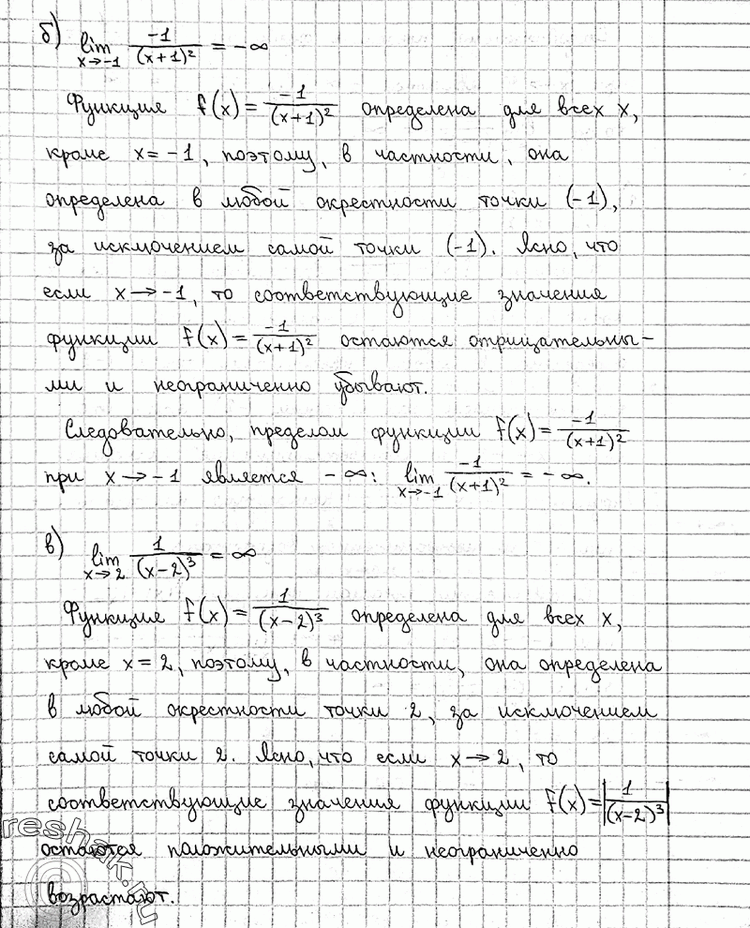 б) lim x→-1 -1/(x+1)² = -∞
Функция f(x) = -1/(x+1)² определена для всех x,
кроме x = -1, поэтому, в частности, она
определена в любой окрестности точки (-1),
за исключением самой точки (-1). Ясно, что
если x→-1, то соответствующие значения
функции f(x) = -1/(x+1)² остаются отрицательны-
ми и неограниченно убывают.
Следовательно, пределом функции f(x) = -1/(x+1)²
при x→-1 является -∞: lim x→-1 -1/(x+1)² = -∞.
в) lim x→2 1/(x-2)³ = ∞
Функция f(x) = 1/(x-2)³ определена для всех x,
кроме x = 2, поэтому, в частности, она определена
в любой окрестности точки 2, за исключением
самой точки 2. Ясно, что если x→2, то
соответствующие значения функции f(x) = |1/(x-2)³|
остаются положительными и неограниченно
возрастают.
reshak.ru